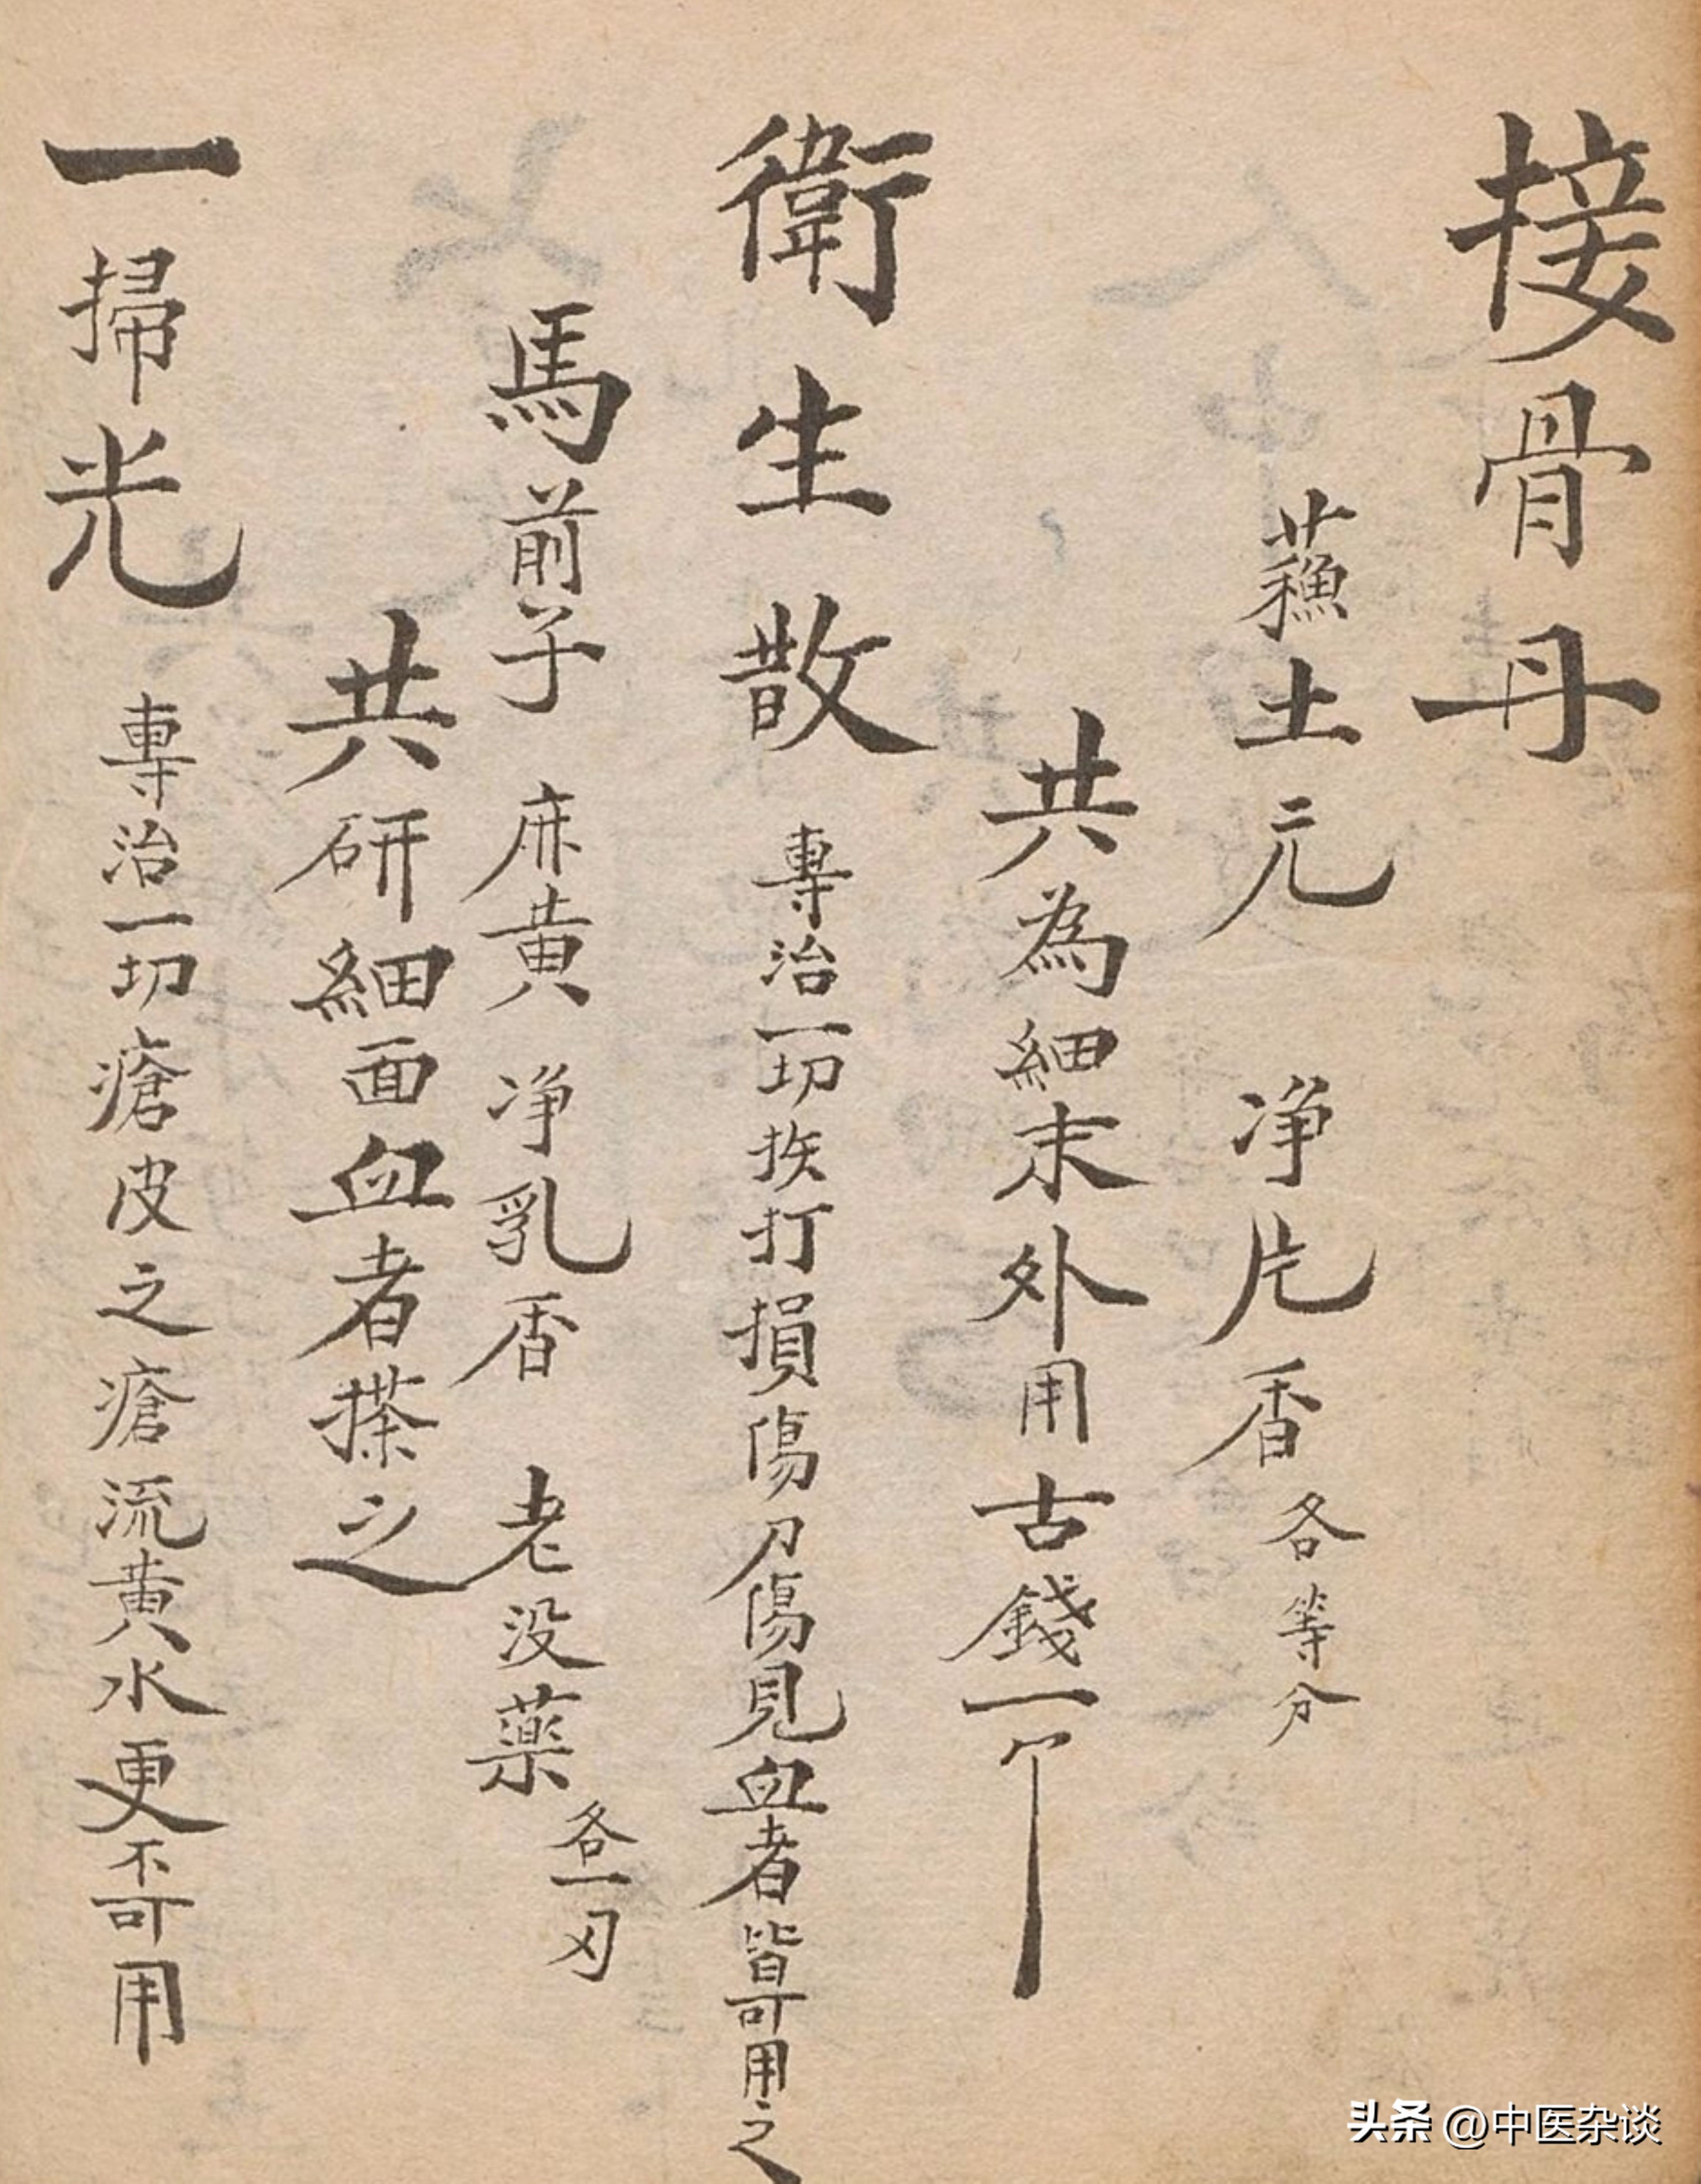 接骨丹
蘓土元 净片香各等分
共為細末外用古錢一
衛生散 專治一切挨打損傷刀傷見血者皆可用之
馬前子 麻黄 净乳香 老没藥各一
共研細面血者搽之
一掃光 專治一切瘡皮之瘡流黄水更可用
头条 @中医杂谈